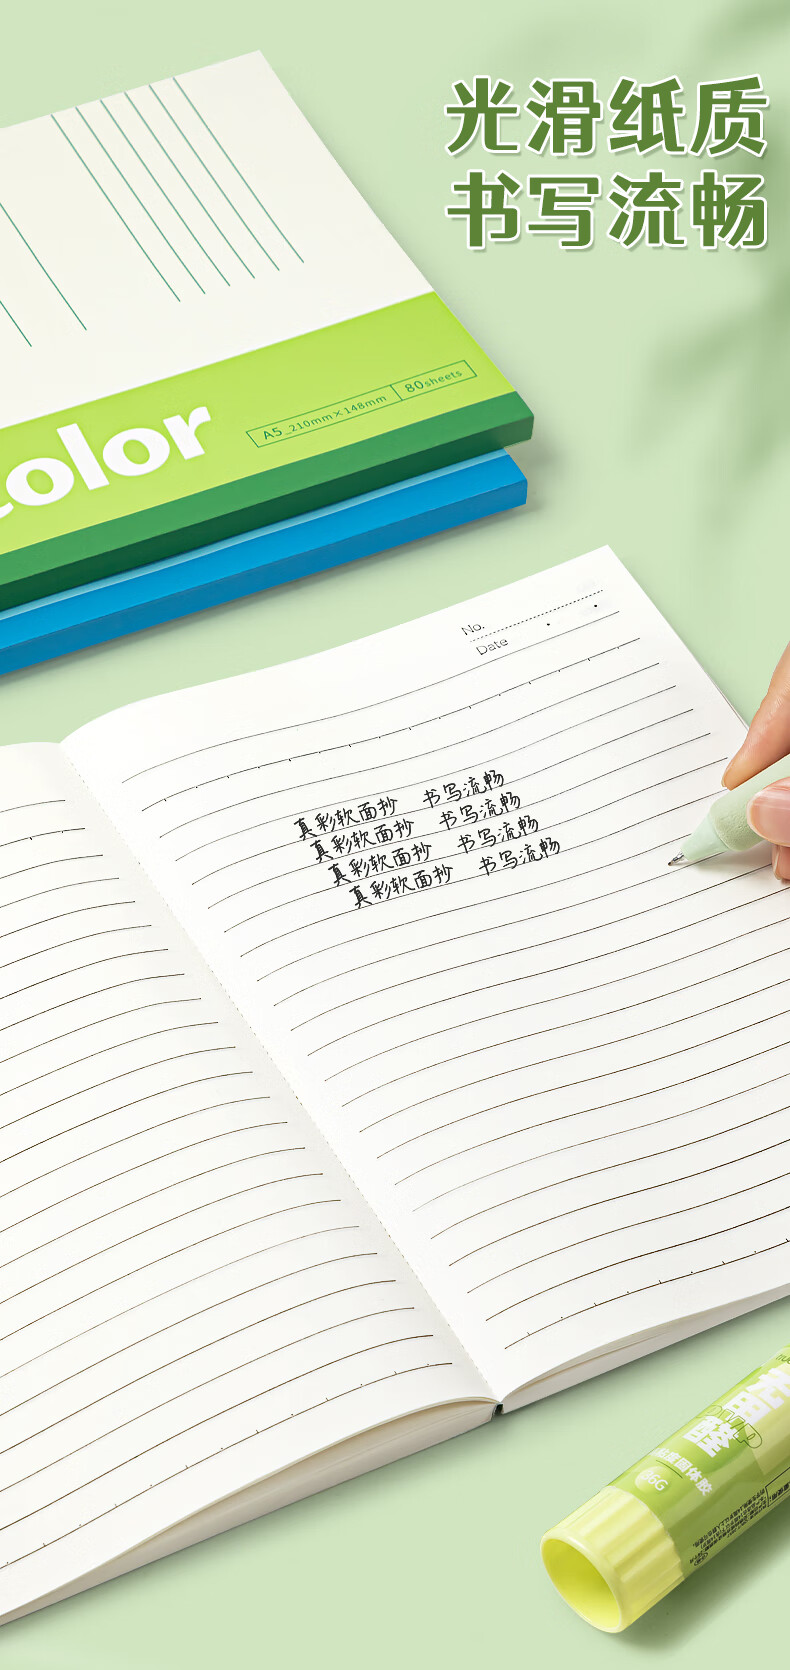 光滑纸质
书写流畅
A5_210mm×148mm 80sheets
color
No.
Date
真彩软面抄 书写流畅
真彩软面抄 书写流畅
真彩软面抄 书写流畅
真彩软面抄 书写流畅
无甲醛
PVP
粘度固体胶
36G